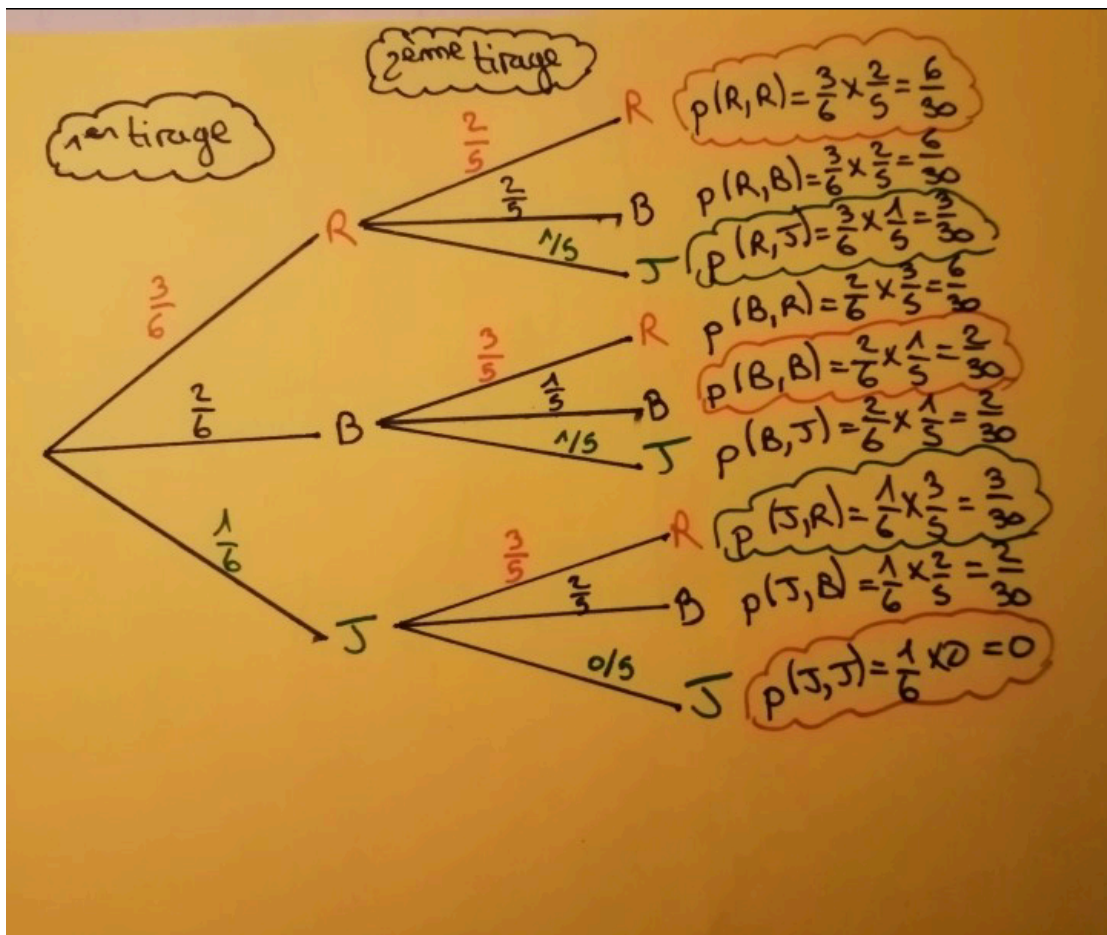 2ème tirage
1er tirage
3/6
R
2/5
R
p(R,R) = 3/6 × 2/5 = 6/30
2/5
B
p(R,B) = 3/6 × 2/5 = 6/30
1/5
J
p(R,J) = 3/6 × 1/5 = 3/30
2/6
B
3/5
R
p(B,R) = 2/6 × 3/5 = 6/30
1/5
B
p(B,B) = 2/6 × 1/5 = 2/30
1/5
J
p(B,J) = 2/6 × 1/5 = 2/30
1/6
J
3/5
R
p(J,R) = 1/6 × 3/5 = 3/30
2/5
B
p(J,B) = 1/6 × 2/5 = 2/30
0/5
J
p(J,J) = 1/6 × 0 = 0